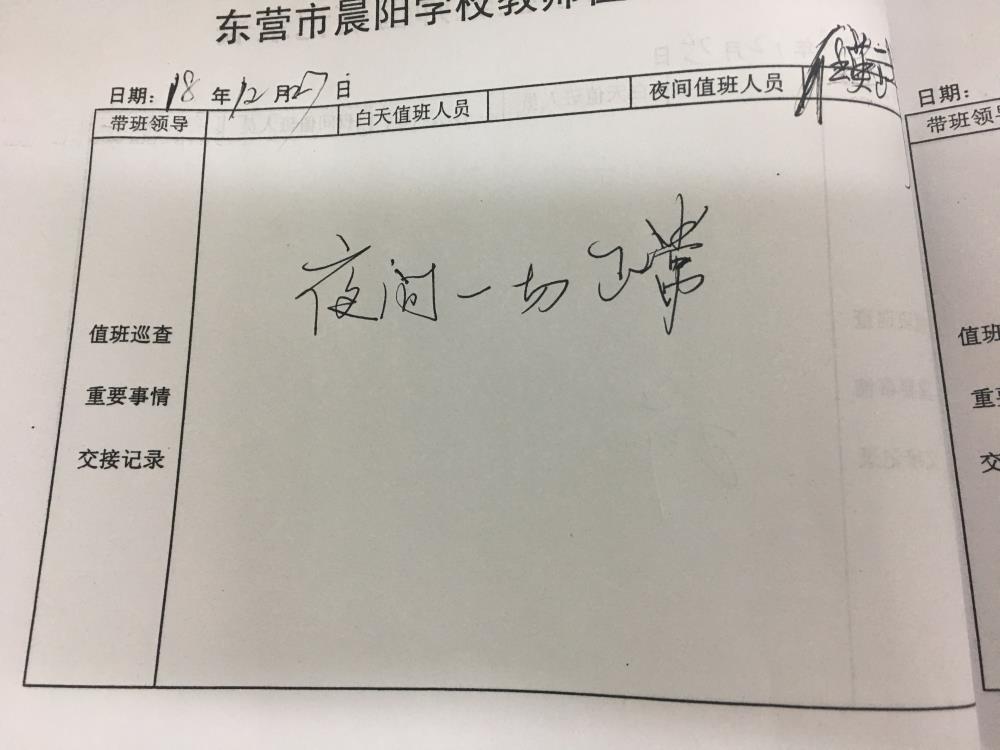 东营市晨阳学校教师值
日期: 18 年 12 月 27 日
带班领导 白天值班人员 夜间值班人员
夜间一切正常
值班巡查
重要事情
交接记录
日期:
带班领导
值班
重要
交